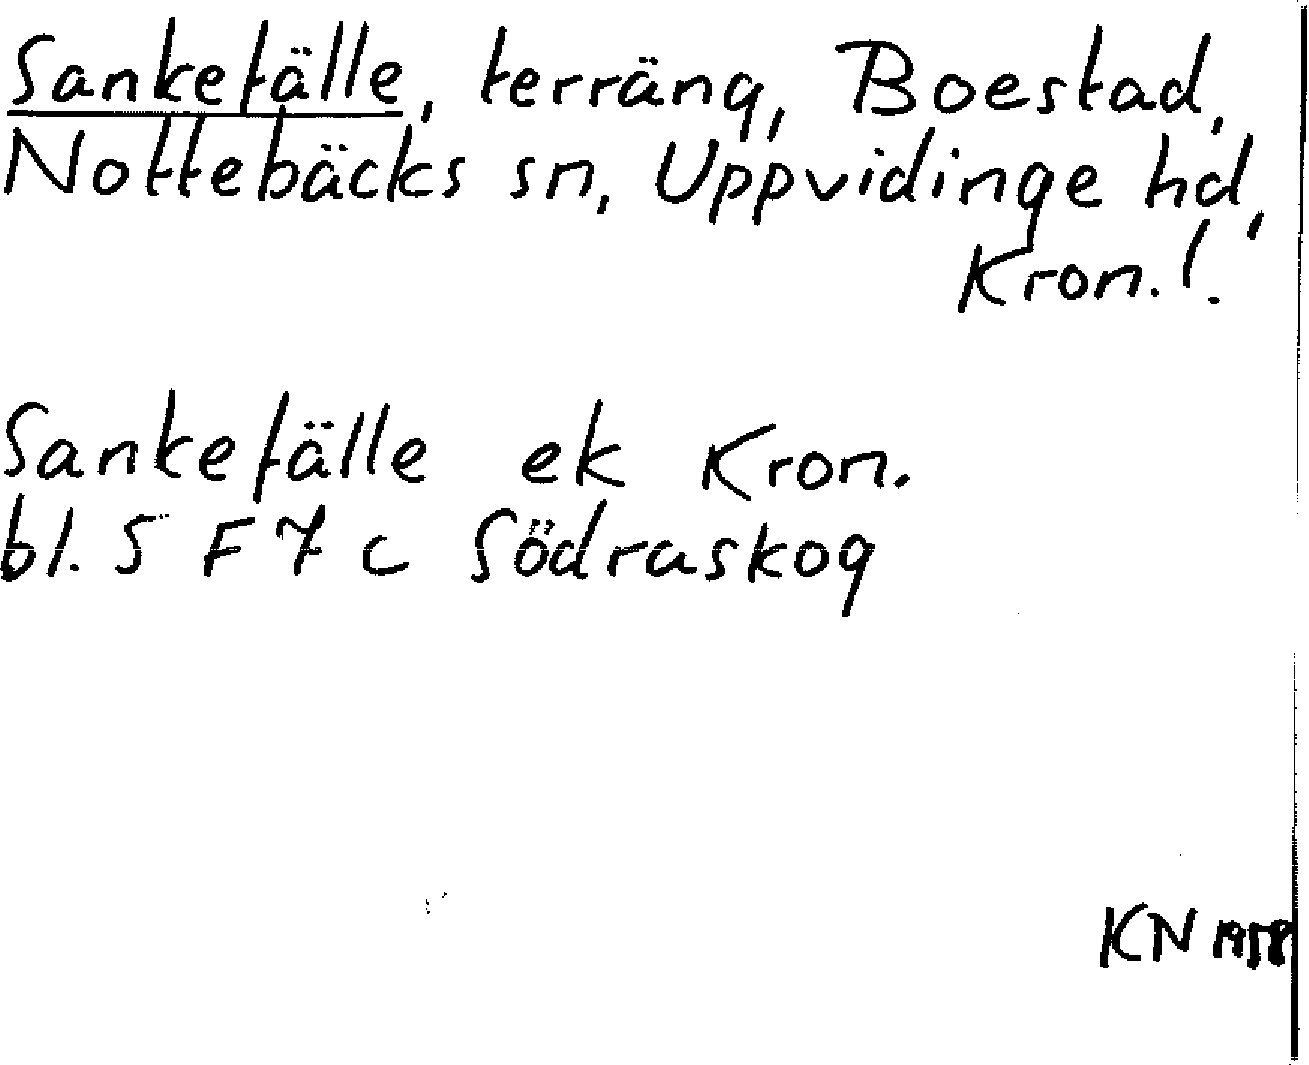 Sankefälle, terräng, Boestad,
Nottebäcks sn, Uppvidinge hd,
Kron.!
Sankefälle ek Kron.
bl. 5 F 7 c Södraskog
KN 1958